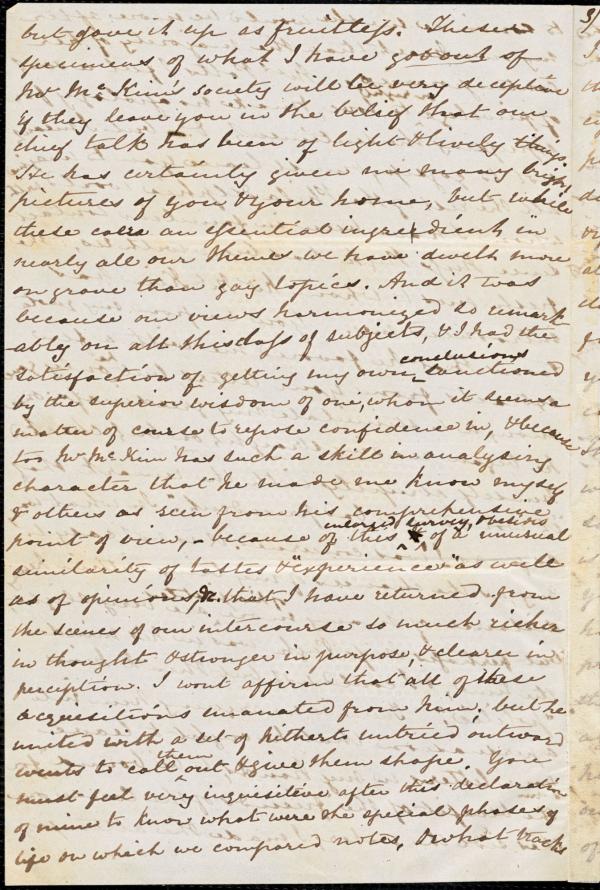 but gave it up as fruitless. These
specimens of what I have got out of
Mr McKim's society will be very deceptive
if they leave you in the belief that our
chief talk has been of light & lively things.
He has certainly given me many bright
pictures of you & your home, but while
these were an essential ingredient in
nearly all our themes we have dwelt more
on grave than gay topics. And it was
because our views harmonized so remark-
ably on all this class of subjects, & I had the
satisfaction of getting my own conclusions sanctioned
by the superior wisdom of one, whom it seems a
matter of course to repose confidence in, & because
too Mr McKim has such a skill in analysing
character that he made me know myself
& others as seen from his comprehensive
point of view, - because of this enlarged survey, & besides
of a unusual
similarity of tastes & "experiences" as well
as of opinions &c. that I have returned from
the scenes of our intercourse so much richer
in thought & stronger in purpose, & clearer in
perception. I wont affirm that all of these
acquisitions emanated from him; but he
united with a set of hitherto untried outward
events to call them out & give them shape. You
must feel very inquisitive after this declaration
of mine to know what were the special phases of
life on which we compared notes, & what tracks